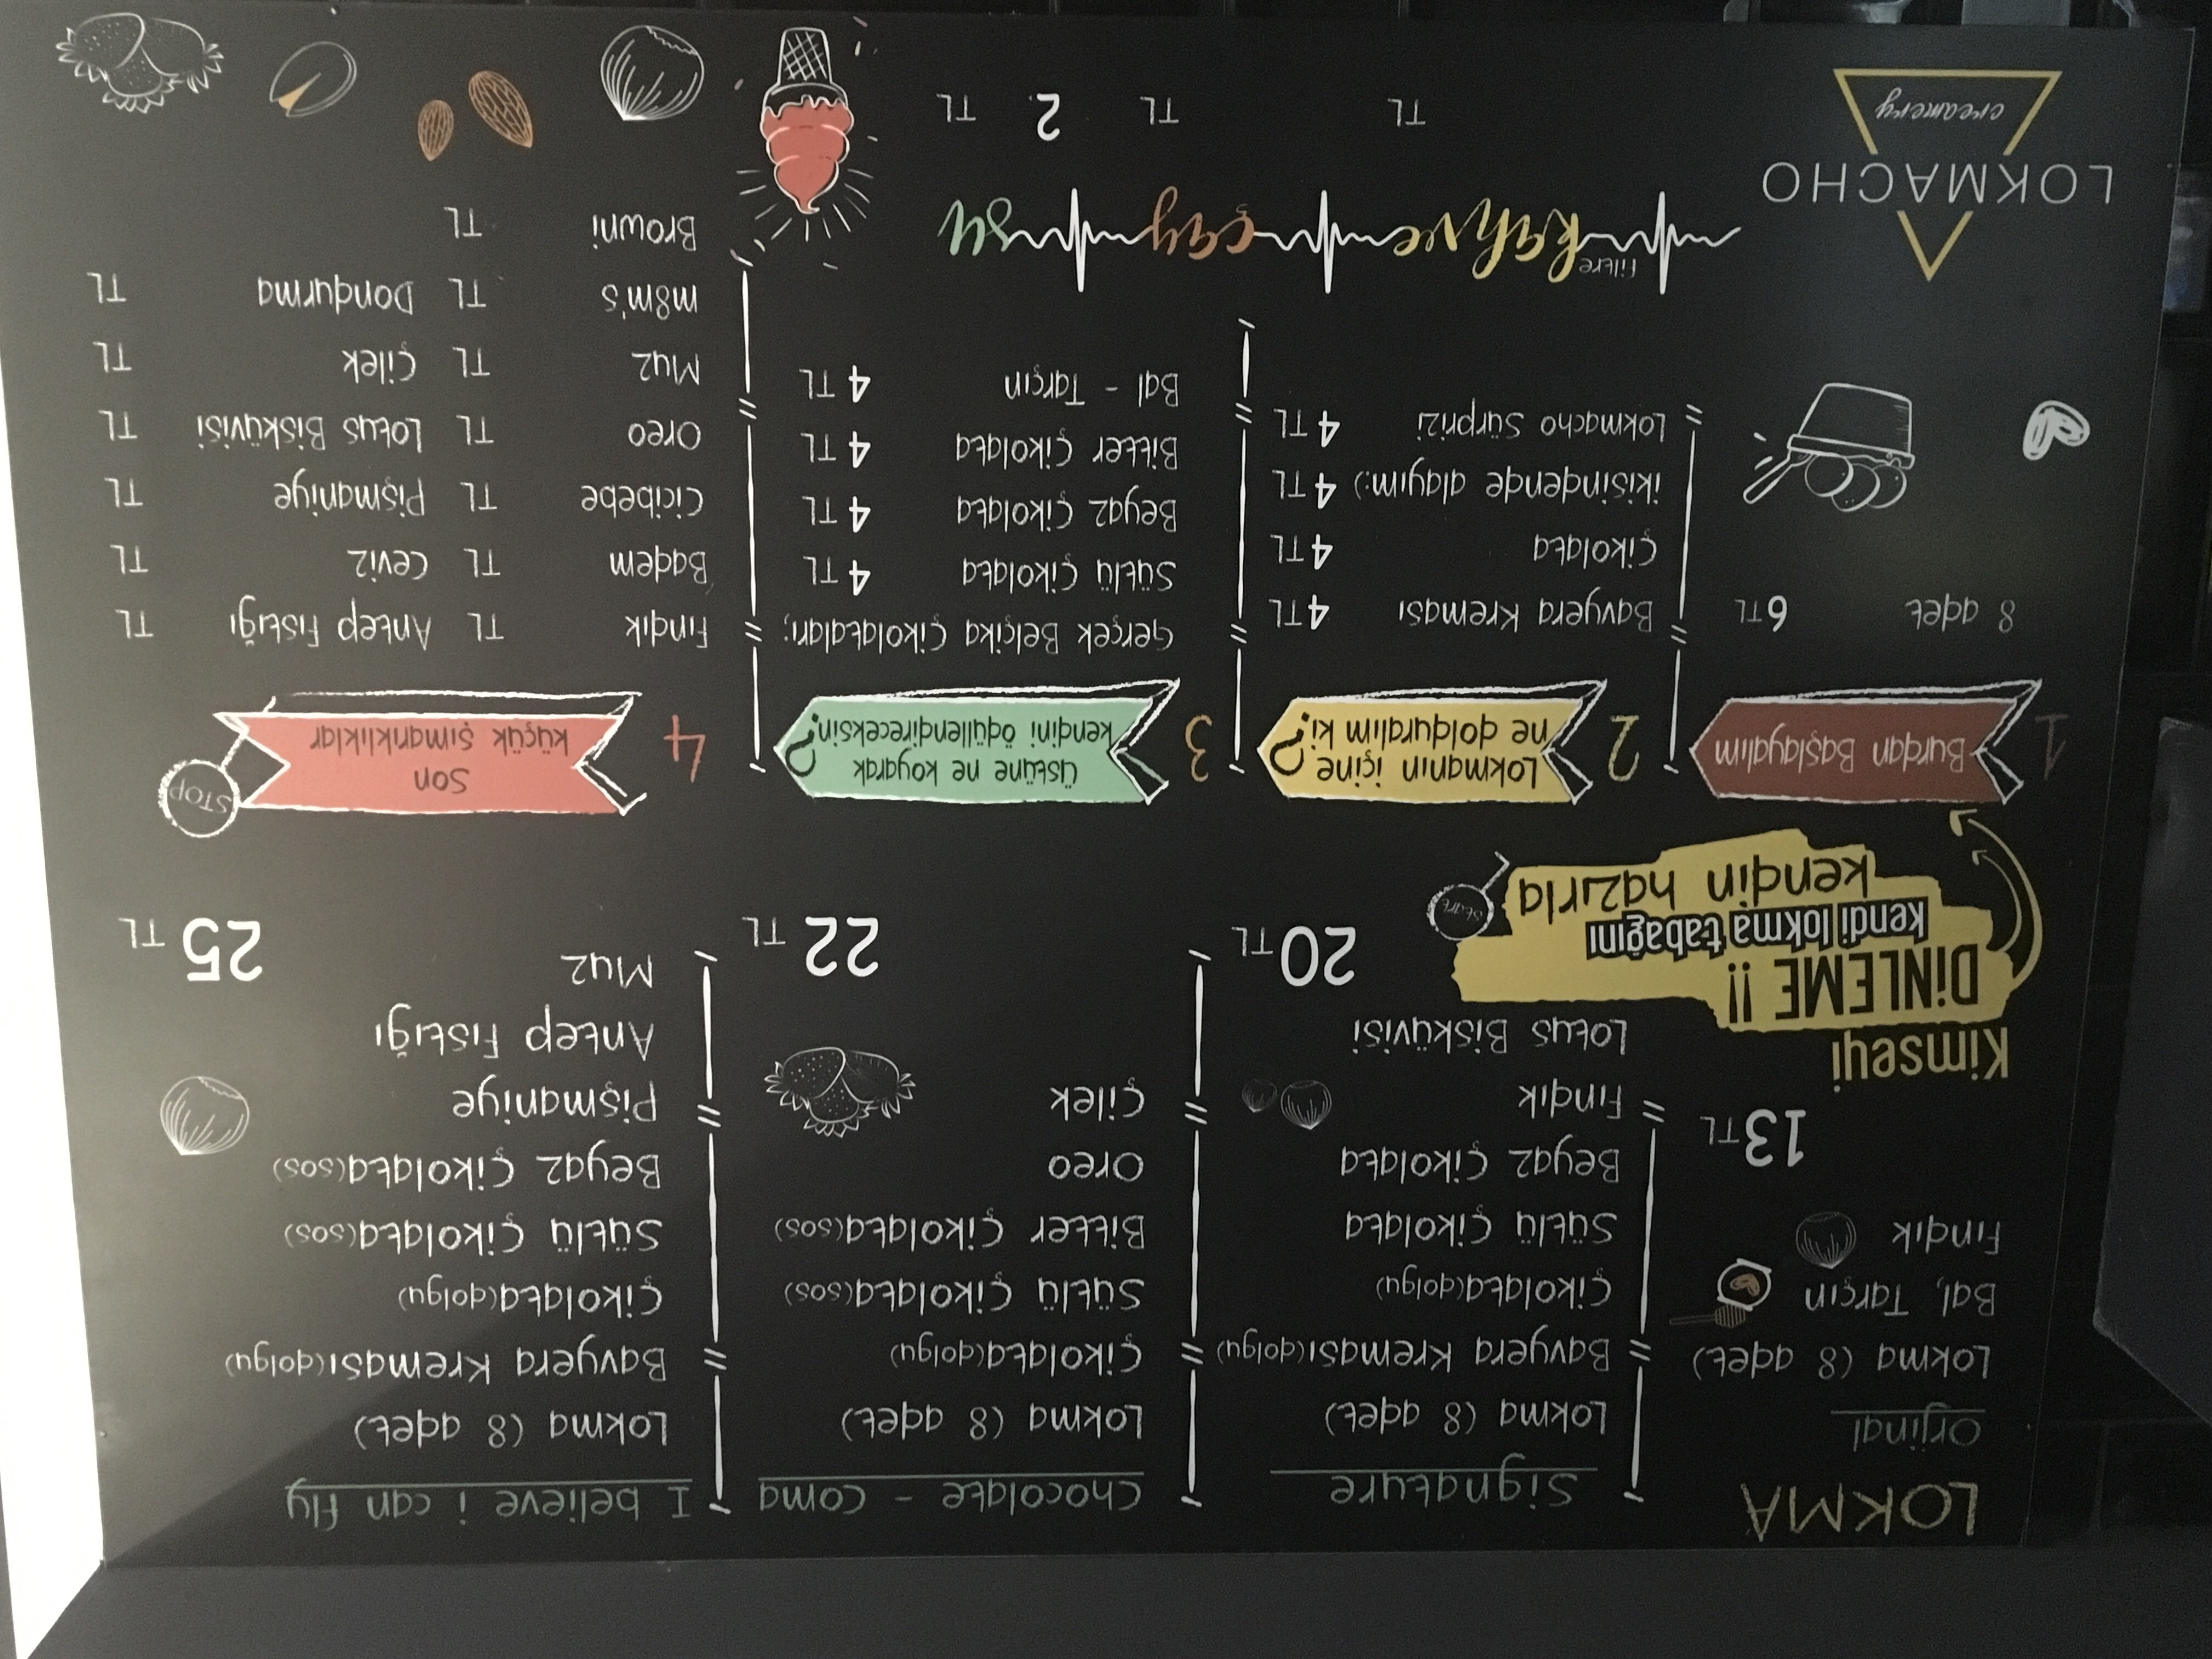 LOKMA
Orjinal
Lokma (8 adet)
Bal, Tarçın
Fındık
13 TL
Signature
Lokma (8 adet)
Bavyera Kreması(dolgu)
Çikolata(dolgu)
Sütlü Çikolata
Beyaz Çikolata
Fındık
Lotus Bisküvisi
20 TL
Chocolate - Coma
Lokma (8 adet)
Çikolata(dolgu)
Sütlü Çikolata(sos)
Bitter Çikolata(sos)
Oreo
Çilek
22 TL
I believe i can fly
Lokma (8 adet)
Bavyera Kreması(dolgu)
Çikolata(dolgu)
Sütlü Çikolata(sos)
Beyaz Çikolata(sos)
Pişmaniye
Antep Fıstığı
Muz
25 TL
Kimseyi
DİNLEME !!
kendi lokma tabağını
kendin hazırla
start
1 Burdan Başlayalım
8 adet 6 TL
2 Lokmanın içine
ne dolduralım ki ?
Bavyera Kreması 4 TL
Çikolata 4 TL
ikisindende alayım:) 4 TL
Lokmacho Sürprizi 4 TL
3 Üstüne ne koyarak
kendini ödüllendireceksin ?
Gerçek Belçika Çikolataları;
Sütlü Çikolata 4 TL
Beyaz Çikolata 4 TL
Bitter Çikolata 4 TL
Bal - Tarçın 4 TL
4 Son
küçük Şımarıklıklar
STOP
Fındık TL Antep Fıstığı TL
Badem TL Ceviz TL
Cicibebe TL Pişmaniye TL
Oreo TL Lotus Bisküvisi TL
Muz TL Çilek TL
m&m's TL Dondurma TL
Browni TL
filtre kahve çay su
TL TL 2 TL
LOKMACHO
creamery